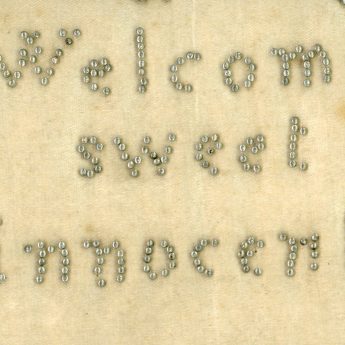 Welcom
sweet
innocen